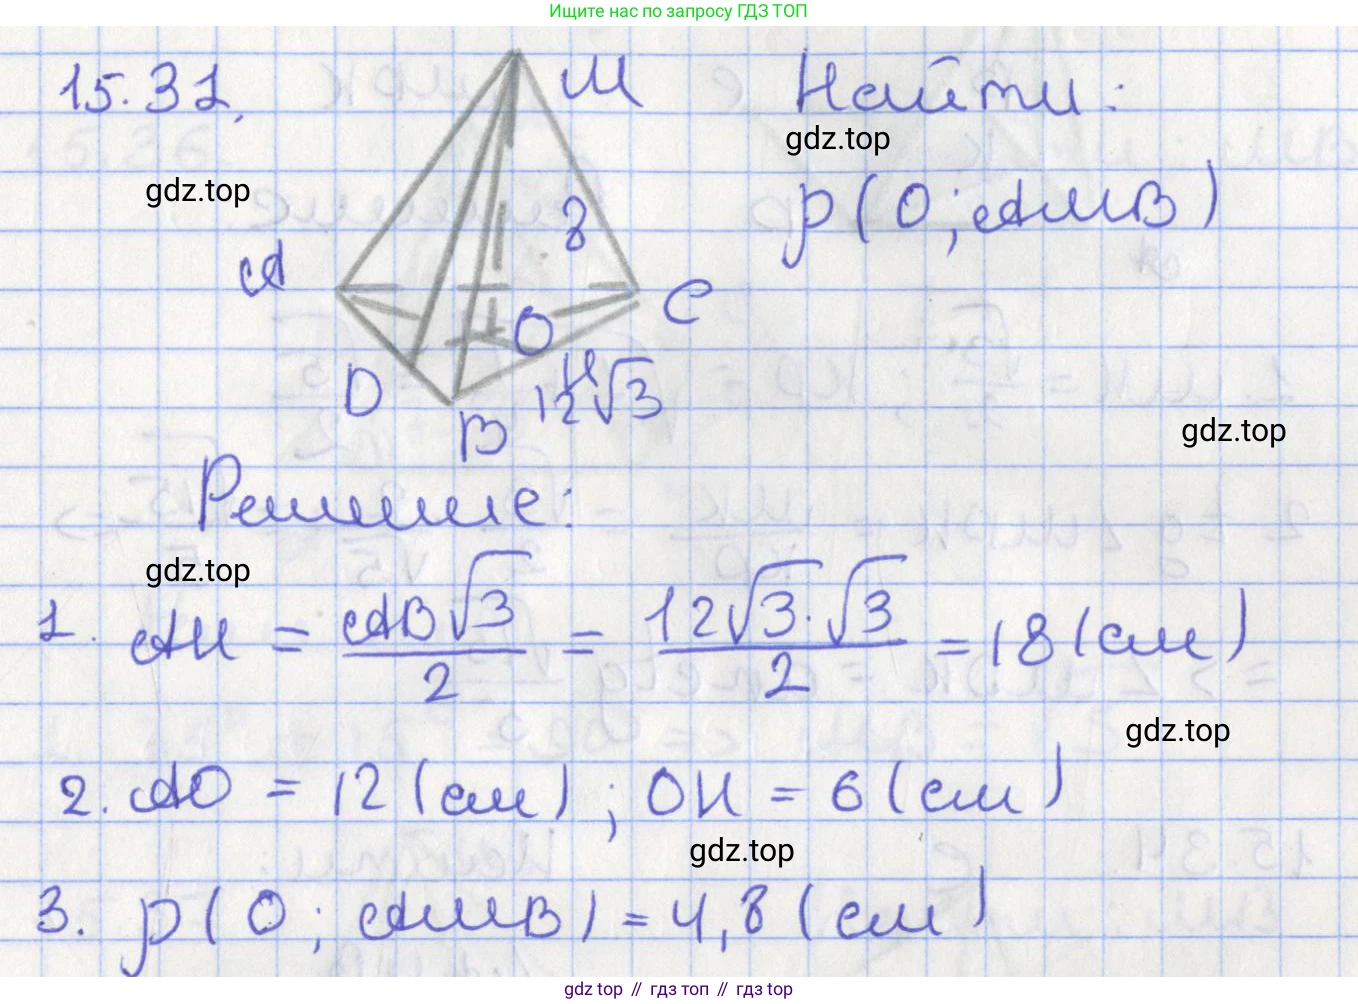 Ищите нас по запросу ГДЗ ТОП
15.31.
M
Найти:
gdz.top
gdz.top
ρ(O; AMB)
8
A
C
O
H
D
12√3
B
gdz.top
Решение:
gdz.top
1. AH = AB√3/2 = 12√3·√3/2 = 18 (см)
gdz.top
2. AO = 12 (см); OH = 6 (см)
gdz.top
3. ρ(O; AMB) = 4,8 (см)
gdz top // гдз топ // gdz top